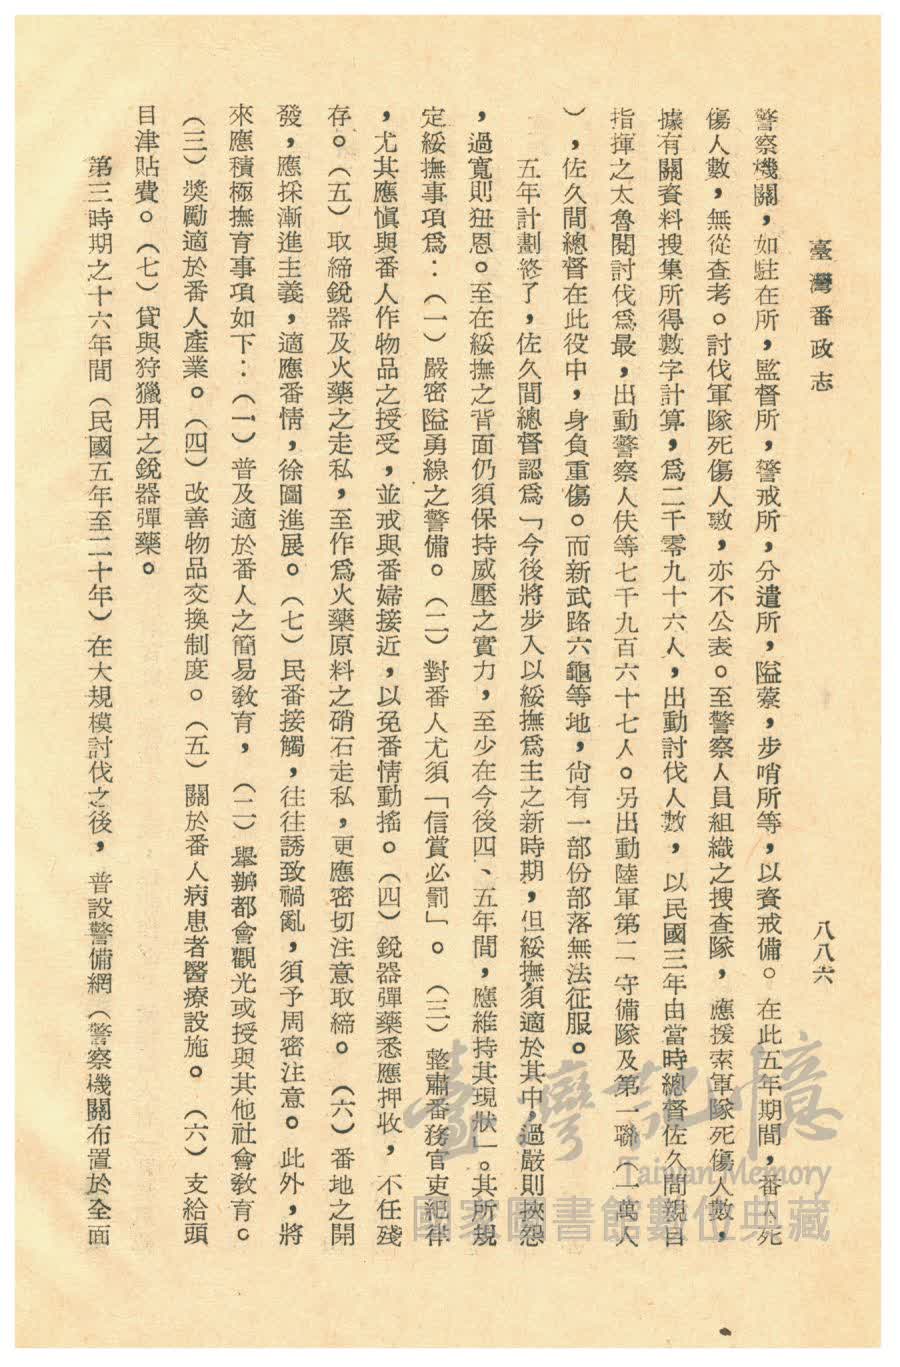 臺灣番政志
八八六
警察機關，如駐在所，監督所，警戒所，分遣所，隘藔，步哨所等，以資戒備。在此五年期間，番人死
傷人數，無從查考。討伐軍隊死傷人數，亦不公表。至警察人員組織之搜查隊，應援索軍隊死傷人數，
據有關資料搜集所得數字計算，爲二千零九十六人，出動討伐人數，以民國三年由當時總督佐久間親自
指揮之太魯閣討伐爲最，出動警察人伕等七千九百六十七人。另出動陸軍第二守備隊及第一聯（一萬人
），佐久間總督在此役中，身負重傷。而新武路六龜等地，尙有一部份部落無法征服。
五年計劃終了，佐久間總督認爲「今後將步入以綏撫爲主之新時期，但綏撫須適於其中，過嚴則挾怨
，過寬則狃恩。至在綏撫之背面仍須保持威壓之實力，至少在今後四、五年間，應維持其現狀」。其所規
定綏撫事項爲：（一）嚴密隘勇線之警備。（二）對番人尤須「信賞必罰」。（三）整肅番務官吏紀律
，尤其應愼與番人作物品之授受，並戒與番婦接近，以免番情動搖。（四）銳器彈藥悉應押收，不任殘
存。（五）取締銳器及火藥之走私，至作爲火藥原料之硝石走私，更應密切注意取締。（六）番地之開
發，應採漸進主義，適應番情，徐圖進展。（七）民番接觸，往往誘致禍亂，須予周密注意。此外，將
來應積極撫育事項如下：（一）普及適於番人之簡易敎育，（二）舉辦都會觀光或授與其他社會敎育。
（三）獎勵適於番人產業。（四）改善物品交換制度。（五）關於番人病患者醫療設施。（六）支給頭
目津貼費。（七）貸與狩獵用之銳器彈藥。
第三時期之十六年間（民國五年至二十年）在大規模討伐之後，普設警備網（警察機關布置於全面
臺灣記憶
Taiwan Memory
國家圖書館數位典藏